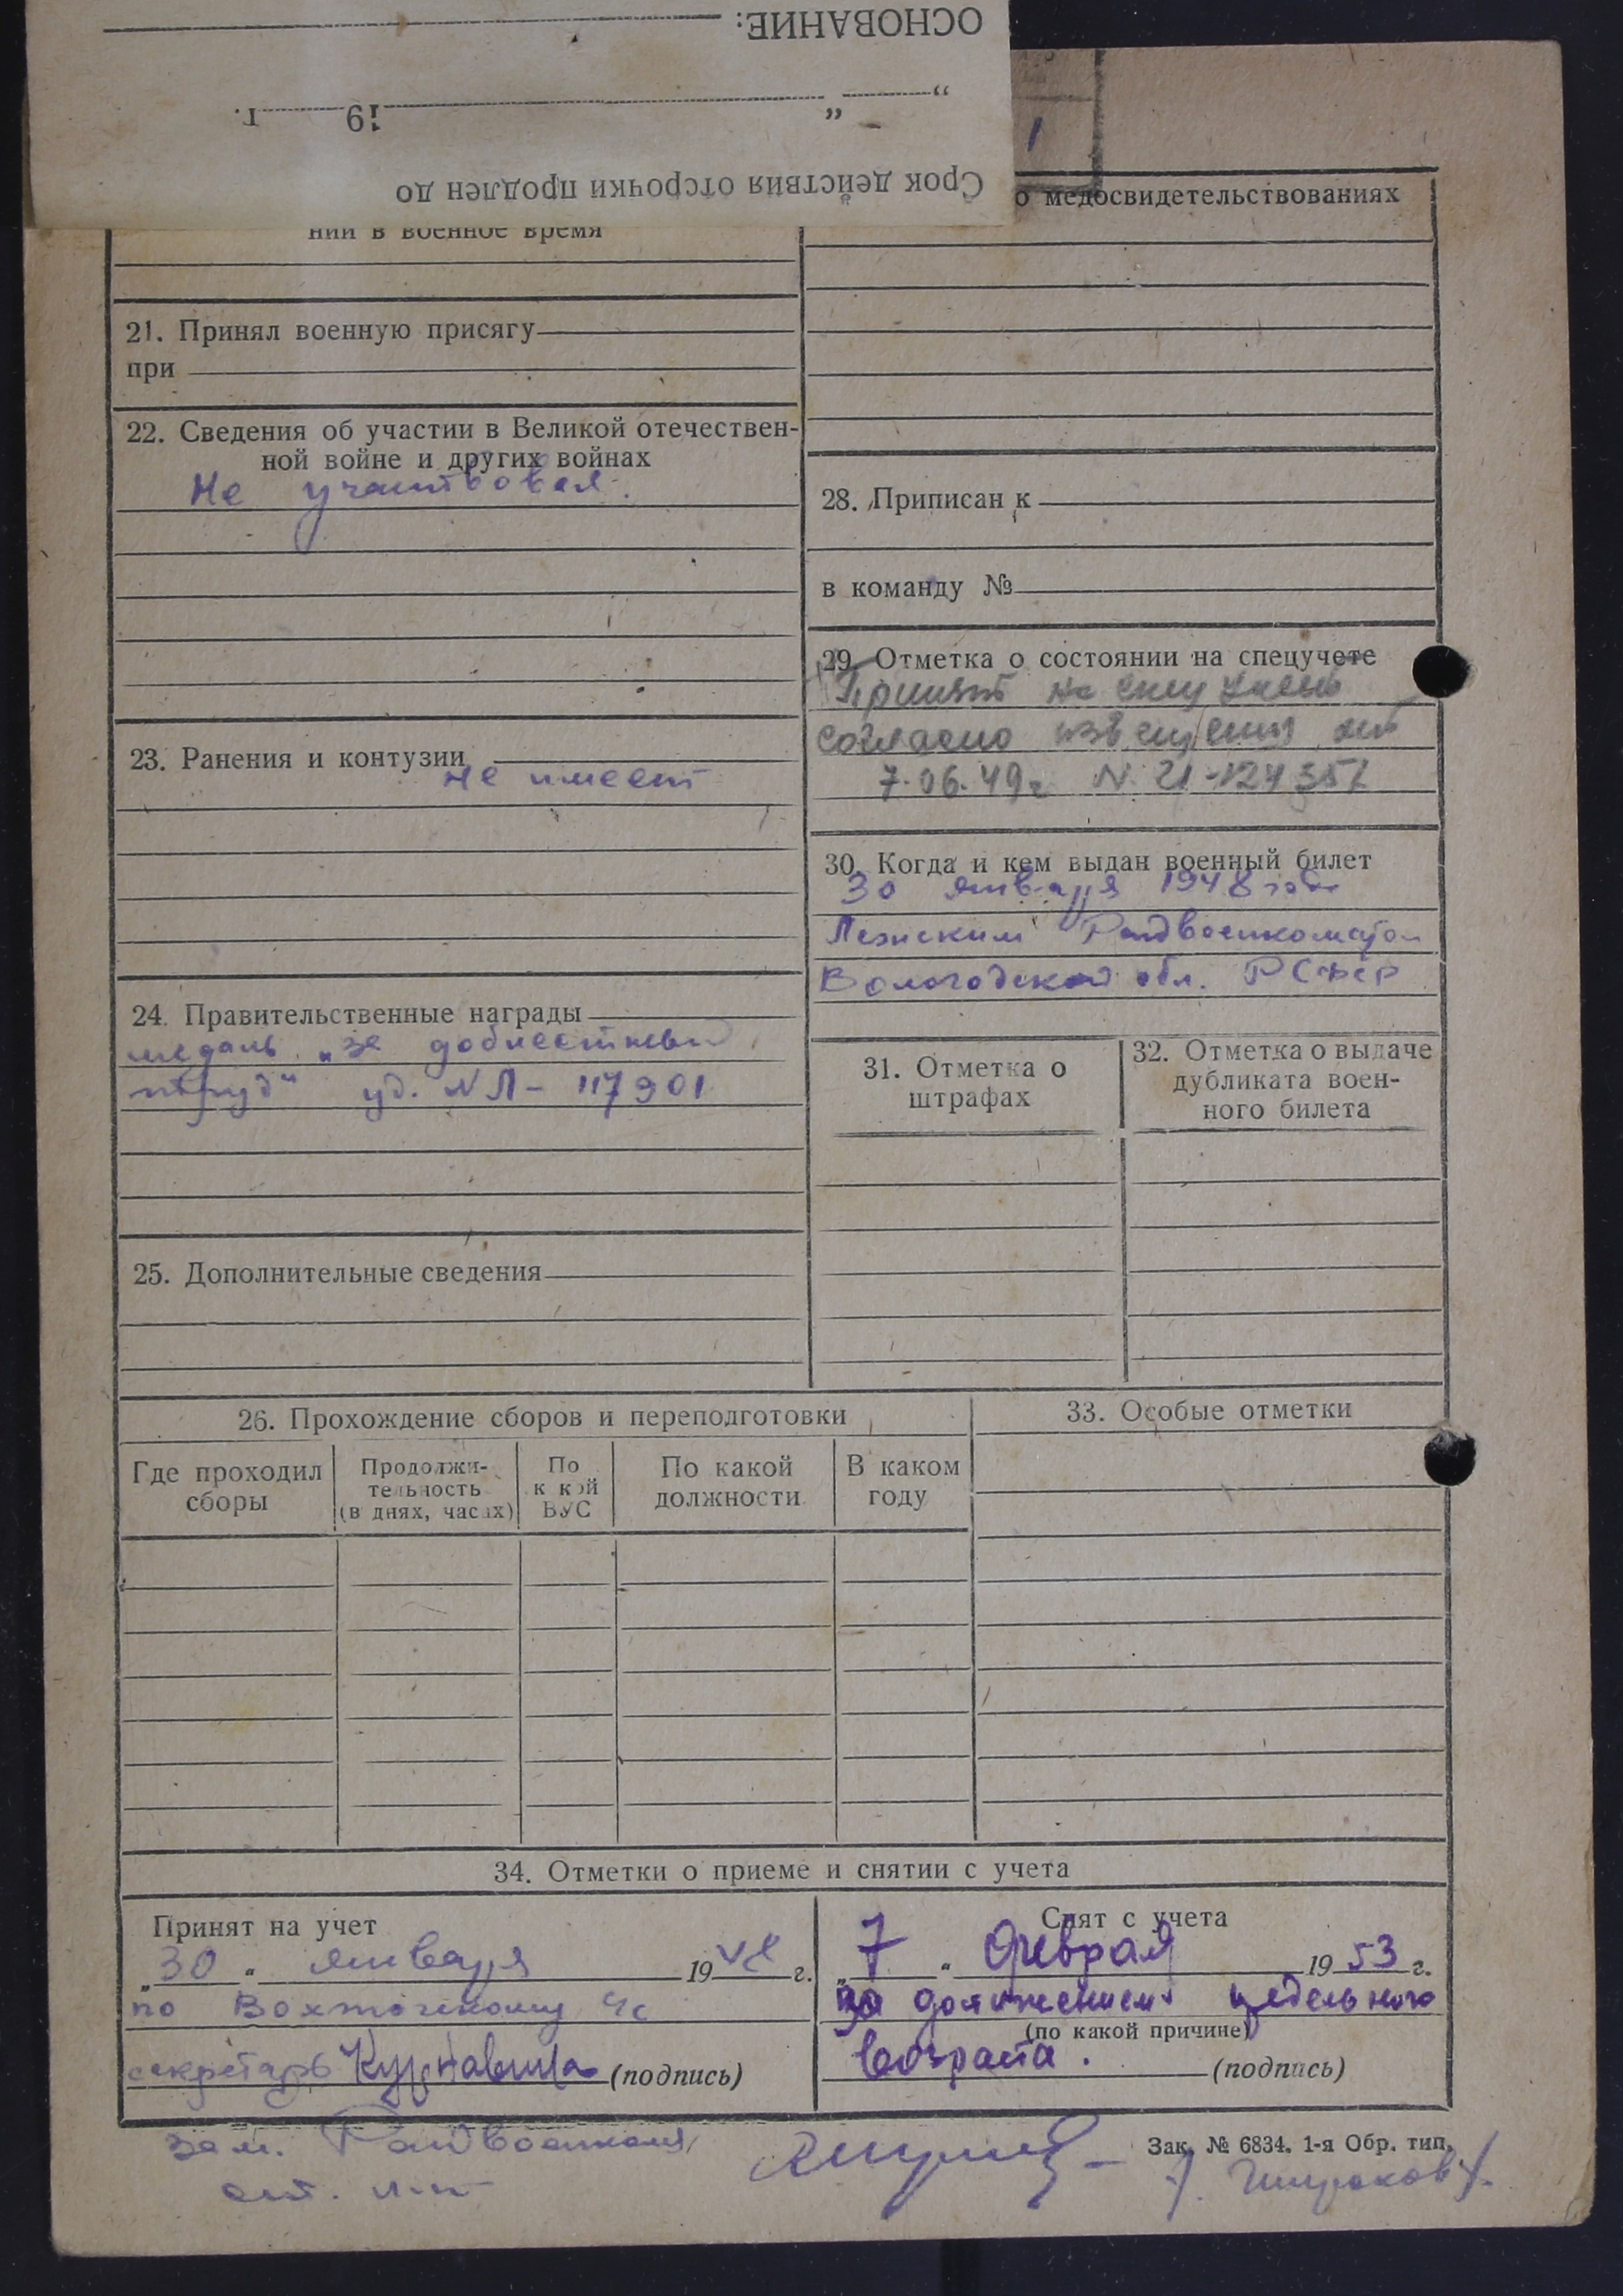 ОСНОВАНИЕ:
„ “ 19 г.
Срок действия отсрочки продлен до
о медосвидетельствованиях
нии в военное время
21. Принял военную присягу
при
22. Сведения об участии в Великой отечествен-
ной войне и других войнах
Не участвовал.
23. Ранения и контузии
не имеет
24. Правительственные награды
медаль „за доблестный
труд“ уд. № Л- 117901
25. Дополнительные сведения
28. Приписан к
в команду №
29. Отметка о состоянии на спецучете
Принят на спец учет
согласно извещения от
7.06.49г N 21-124
30. Когда и кем выдан военный билет
30 января 1948 года
Райвоенкоматом
Вологодской обл. РСФСР
31. Отметка о
штрафах
32. Отметка о выдаче
дубликата воен-
ного билета
26. Прохождение сборов и переподготовки
Где проходил
сборы
Продолжи-
тельность
(в днях, часах)
По
какой
ВУС
По какой
должности
В каком
году
33. Особые отметки
34. Отметки о приеме и снятии с учета
Принят на учет
„30“ января 1948 г.
по Вохтожскому
секретарь (подпись)
Снят с учета
„7“ февраля 1953 г.
за достижением предельного
(по какой причине)
возраста. (подпись)
зам. Райвоенкома
Зак. № 6834. 1-я Обр. тип.
ст. л-т
/Широков/.